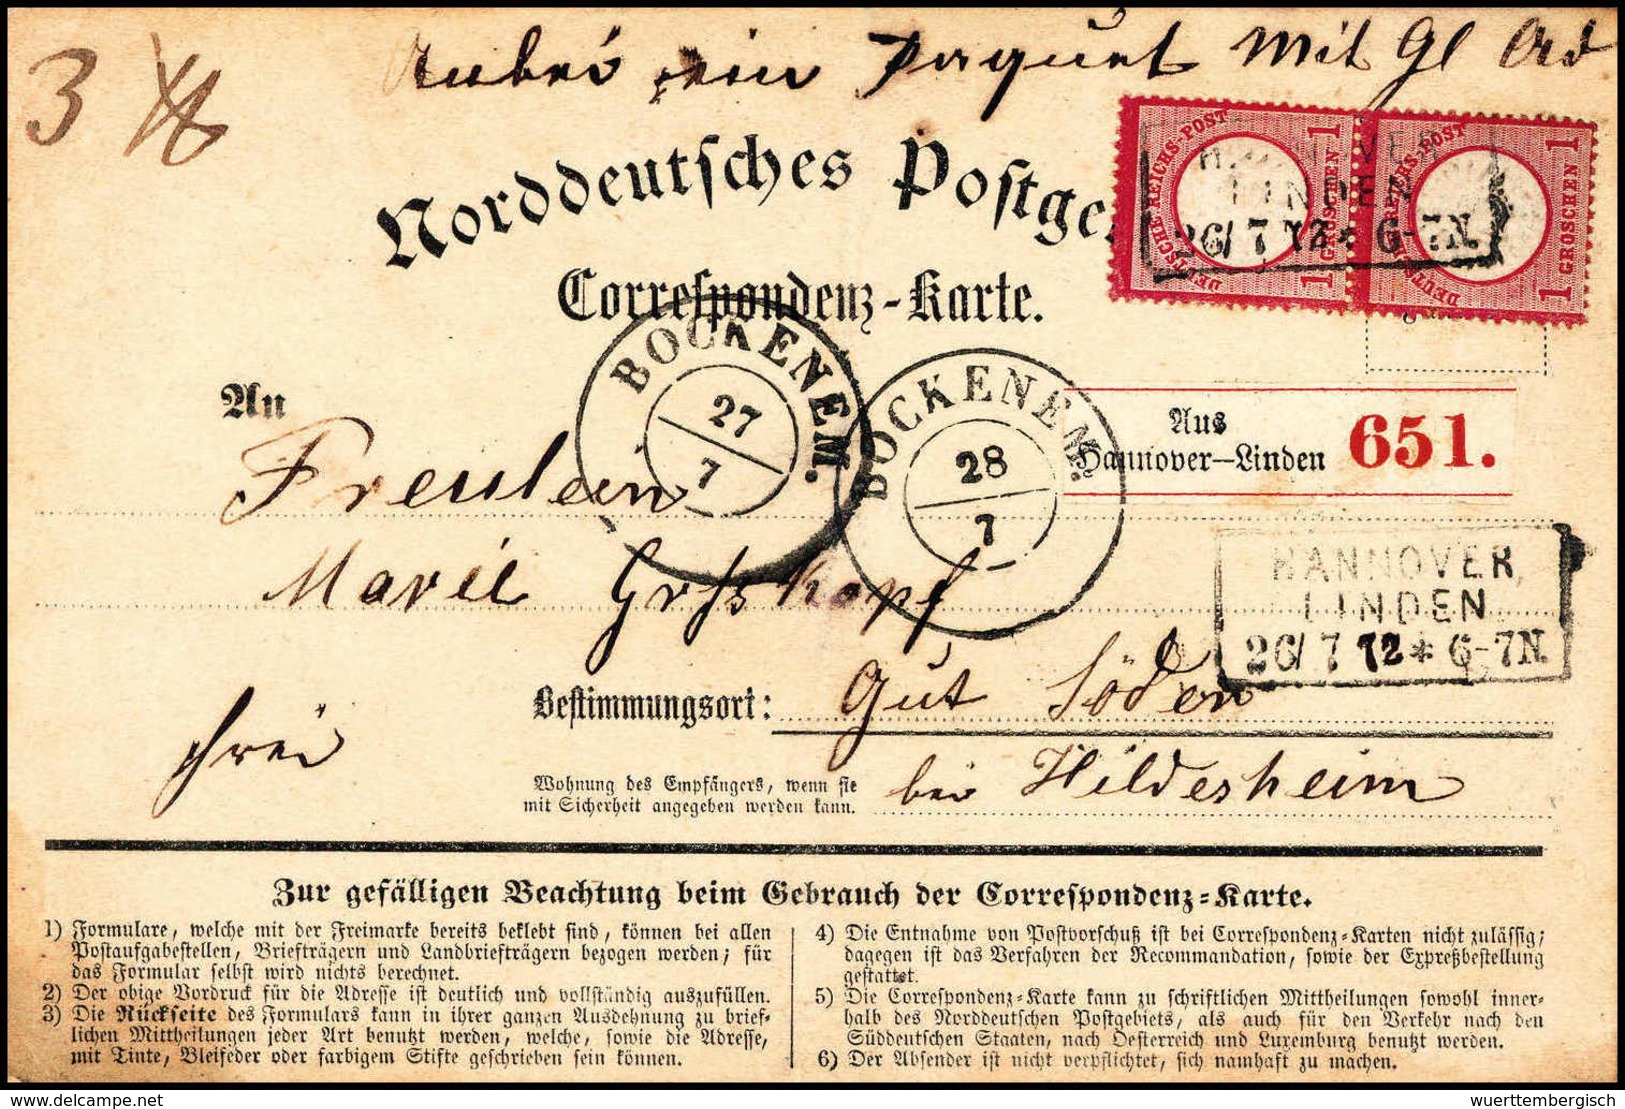 3 ℔
Anbei ein Paquet mit Gl Ad
Norddeutsches Postge
Correspondenz-Karte.
DEUTSCHE REICHS-POST
1 GROSCHEN 1
DEUTSCHE REICHS-POST
1 GROSCHEN 1
HANNOVER
LINDEN
26/7 72 * 6-7N.
BOCKENEM.
27
7
BOCKENEM.
28
7
An
Aus
Hannover-Linden 651.
Freulein
Marie Grosskopf
HANNOVER
LINDEN
26/7 72 * 6-7N.
Bestimmungsort: Gut Söder
frei
Wohnung des Empfängers, wenn sie
mit Sicherheit angegeben werden kann.
bei Hildesheim
Zur gefälligen Beachtung beim Gebrauch der Correspondenz-Karte.
1) Formulare, welche mit der Freimarke bereits beklebt sind, können bei allen
Postaufgabestellen, Briefträgern und Landbriefträgern bezogen werden; für
das Formular selbst wird nichts berechnet.
2) Der obige Vordruck für die Adresse ist deutlich und vollständig auszufüllen.
3) Die Rückseite des Formulars kann in ihrer ganzen Ausdehnung zu brief-
lichen Mittheilungen jeder Art benutzt werden, welche, sowie die Adresse,
mit Tinte, Bleifeder oder farbigem Stifte geschrieben sein können.
4) Die Entnahme von Postvorschuß ist bei Correspondenz-Karten nicht zulässig;
dagegen ist das Verfahren der Recommandation, sowie der Expreßbestellung
gestattet.
5) Die Correspondenz-Karte kann zu schriftlichen Mittheilungen sowohl inner-
halb des Norddeutschen Postgebiets, als auch für den Verkehr nach den
Süddeutschen Staaten, nach Oesterreich und Luxemburg benutzt werden.
6) Der Absender ist nicht verpflichtet, sich namhaft zu machen.
www.delcampe.net
wuerttembergisch